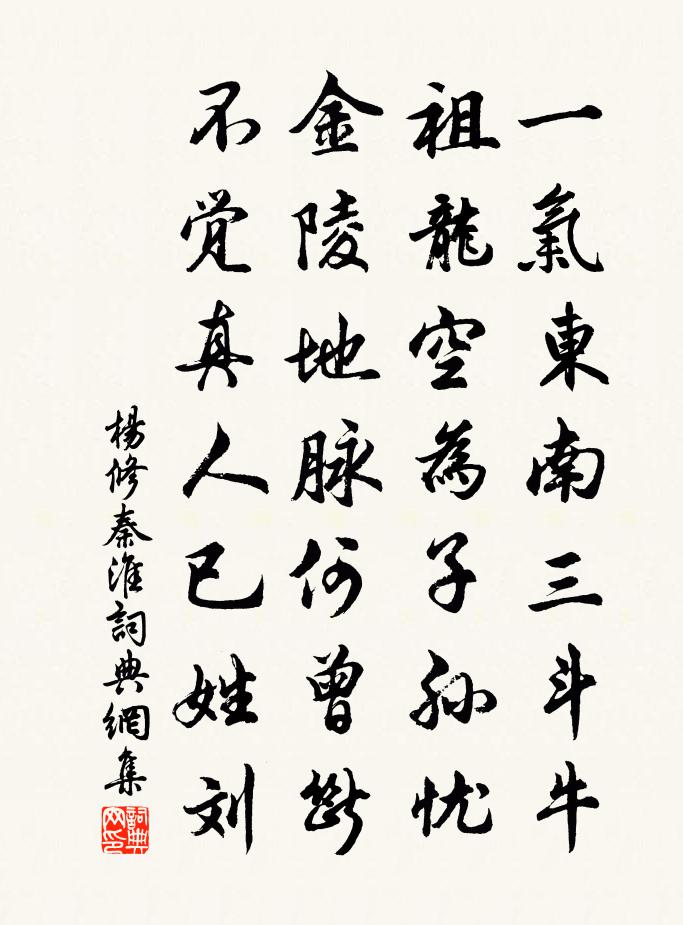 一氣東南三斗牛
祖龍空為子孙忧
金陵地脉何曾断
不覚真人已姓刘
楊修秦淮詞典網集
詞典网印